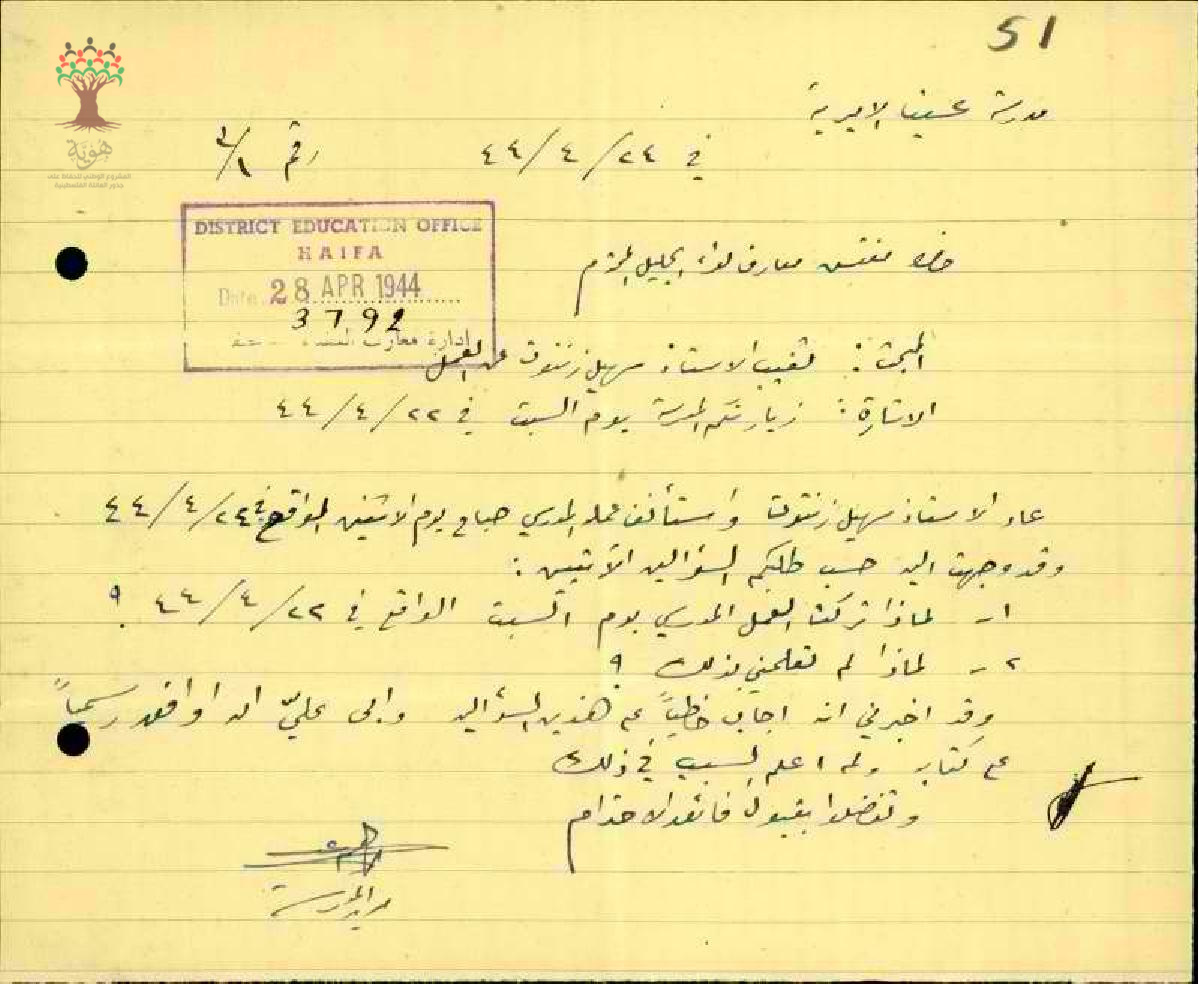 51
مدرسة عسفيا الاميرية
في ٢٤/٤/٤٤
رقم ١/٢
هوية
المشروع الوطني للحفاظ على
جذور العائلة الفلسطينية
DISTRICT EDUCATION OFFICE
HAIFA
Date 28 APR 1944
3792
إدارة معارف
حضرة مفتش معارف لواء الجليل المحترم
المبحث: تغيب الاستاذ سهيل زنتوت عن العمل
الاشارة: زيارتكم المدرسة يوم السبت في ٢٢/٤/٤٤
عاد الاستاذ سهيل زنتوت واستأنف عمله المدرسي صباح يوم الاثنين الواقع في ٢٤/٤/٤٤
وقد وجهت اليه حسب طلبكم السؤالين الآتيين:
١- لماذا تركت العمل المدرسي يوم السبت الواقع في ٢٢/٤/٤٤ ؟
٢- لماذا لم تعلمني بذلك ؟
وقد اخبرني انه اجاب خطياً عن هذين السؤالين وابى عليّ ان اوافقه رسمياً
على كتابه ولم اعلم السبب في ذلك
وتفضلوا بقبول فائق الاحترام
مدير المدرسة